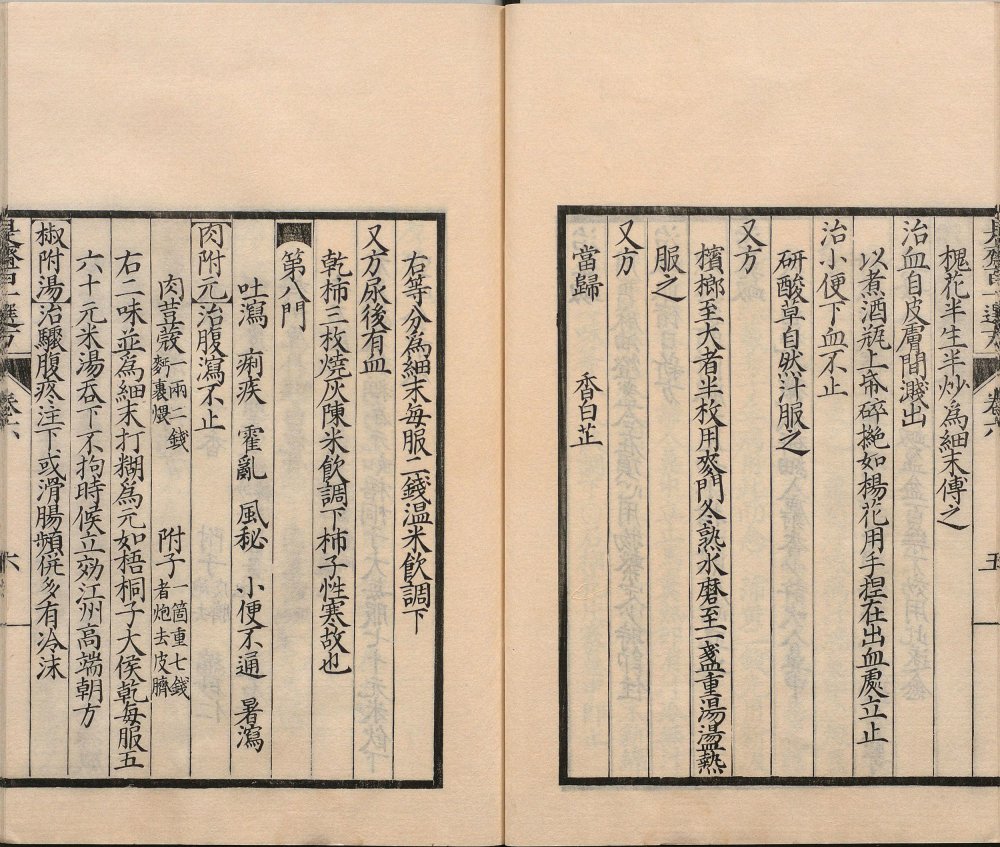 槐花半生半炒為細末傅之
治血自皮膚間濺出
以煮酒瓶上帋碎撧如楊花用手捏在出血處立止
治小便下血不止
研酸草自然汁服之
又方
檳榔至大者半枚用麥門冬熟水磨至一盞重湯盪熱
服之
又方
當歸 香白芷
右等分為細末每服二錢温米飲調下
又方尿後有血
乾柿三枚燒灰陳米飲調下柿子性寒故也
第八門
吐瀉 痢疾 霍亂 風秘 小便不通 暑瀉
肉附元治腹瀉不止
肉荳蔲一兩二錢麪裹煨 附子一箇重七錢者炮去皮臍
右二味並為細末打糊為元如梧桐子大候乾每服五
六十元米湯吞下不拘時候立効江州高端朝方
椒附湯治驟腹疼注下或滑腸頻併多有冷沫
卷六
五
六